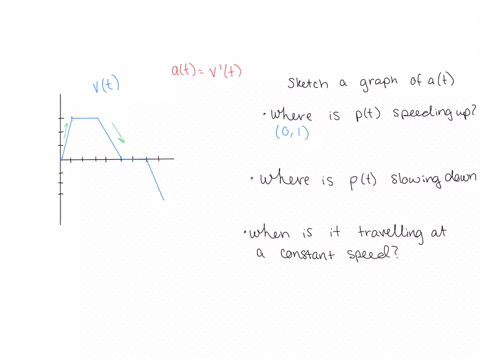 v(t)
a(t) = v'(t)
Sketch a graph of a(t)
• Where is p(t) speeding up?
(0,1)
• Where is p(t) slowing down
• When is it travelling at
a constant speed?